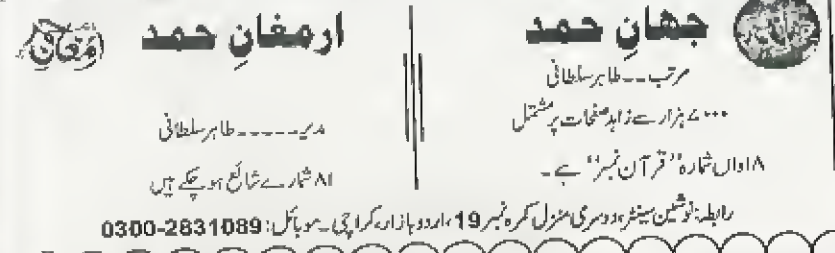 جہانِ حمد
مرتب۔۔طاہر سلطانی
۷۰۰۰ ہزار سے زاہد صفحات پر مشتمل
۱۸واں شمارہ ’’قرآن نمبر‘‘ ہے۔
ارمغانِ حمد
مدیر۔۔۔۔۔طاہر سلطانی
۸۱ شمارے شائع ہوچکے ہیں
رابطہ: نوشین سینٹر، دوسری منزل کمرہ نمبر 19، اردو بازار، کراچی۔ موبائل: 0300-2831089